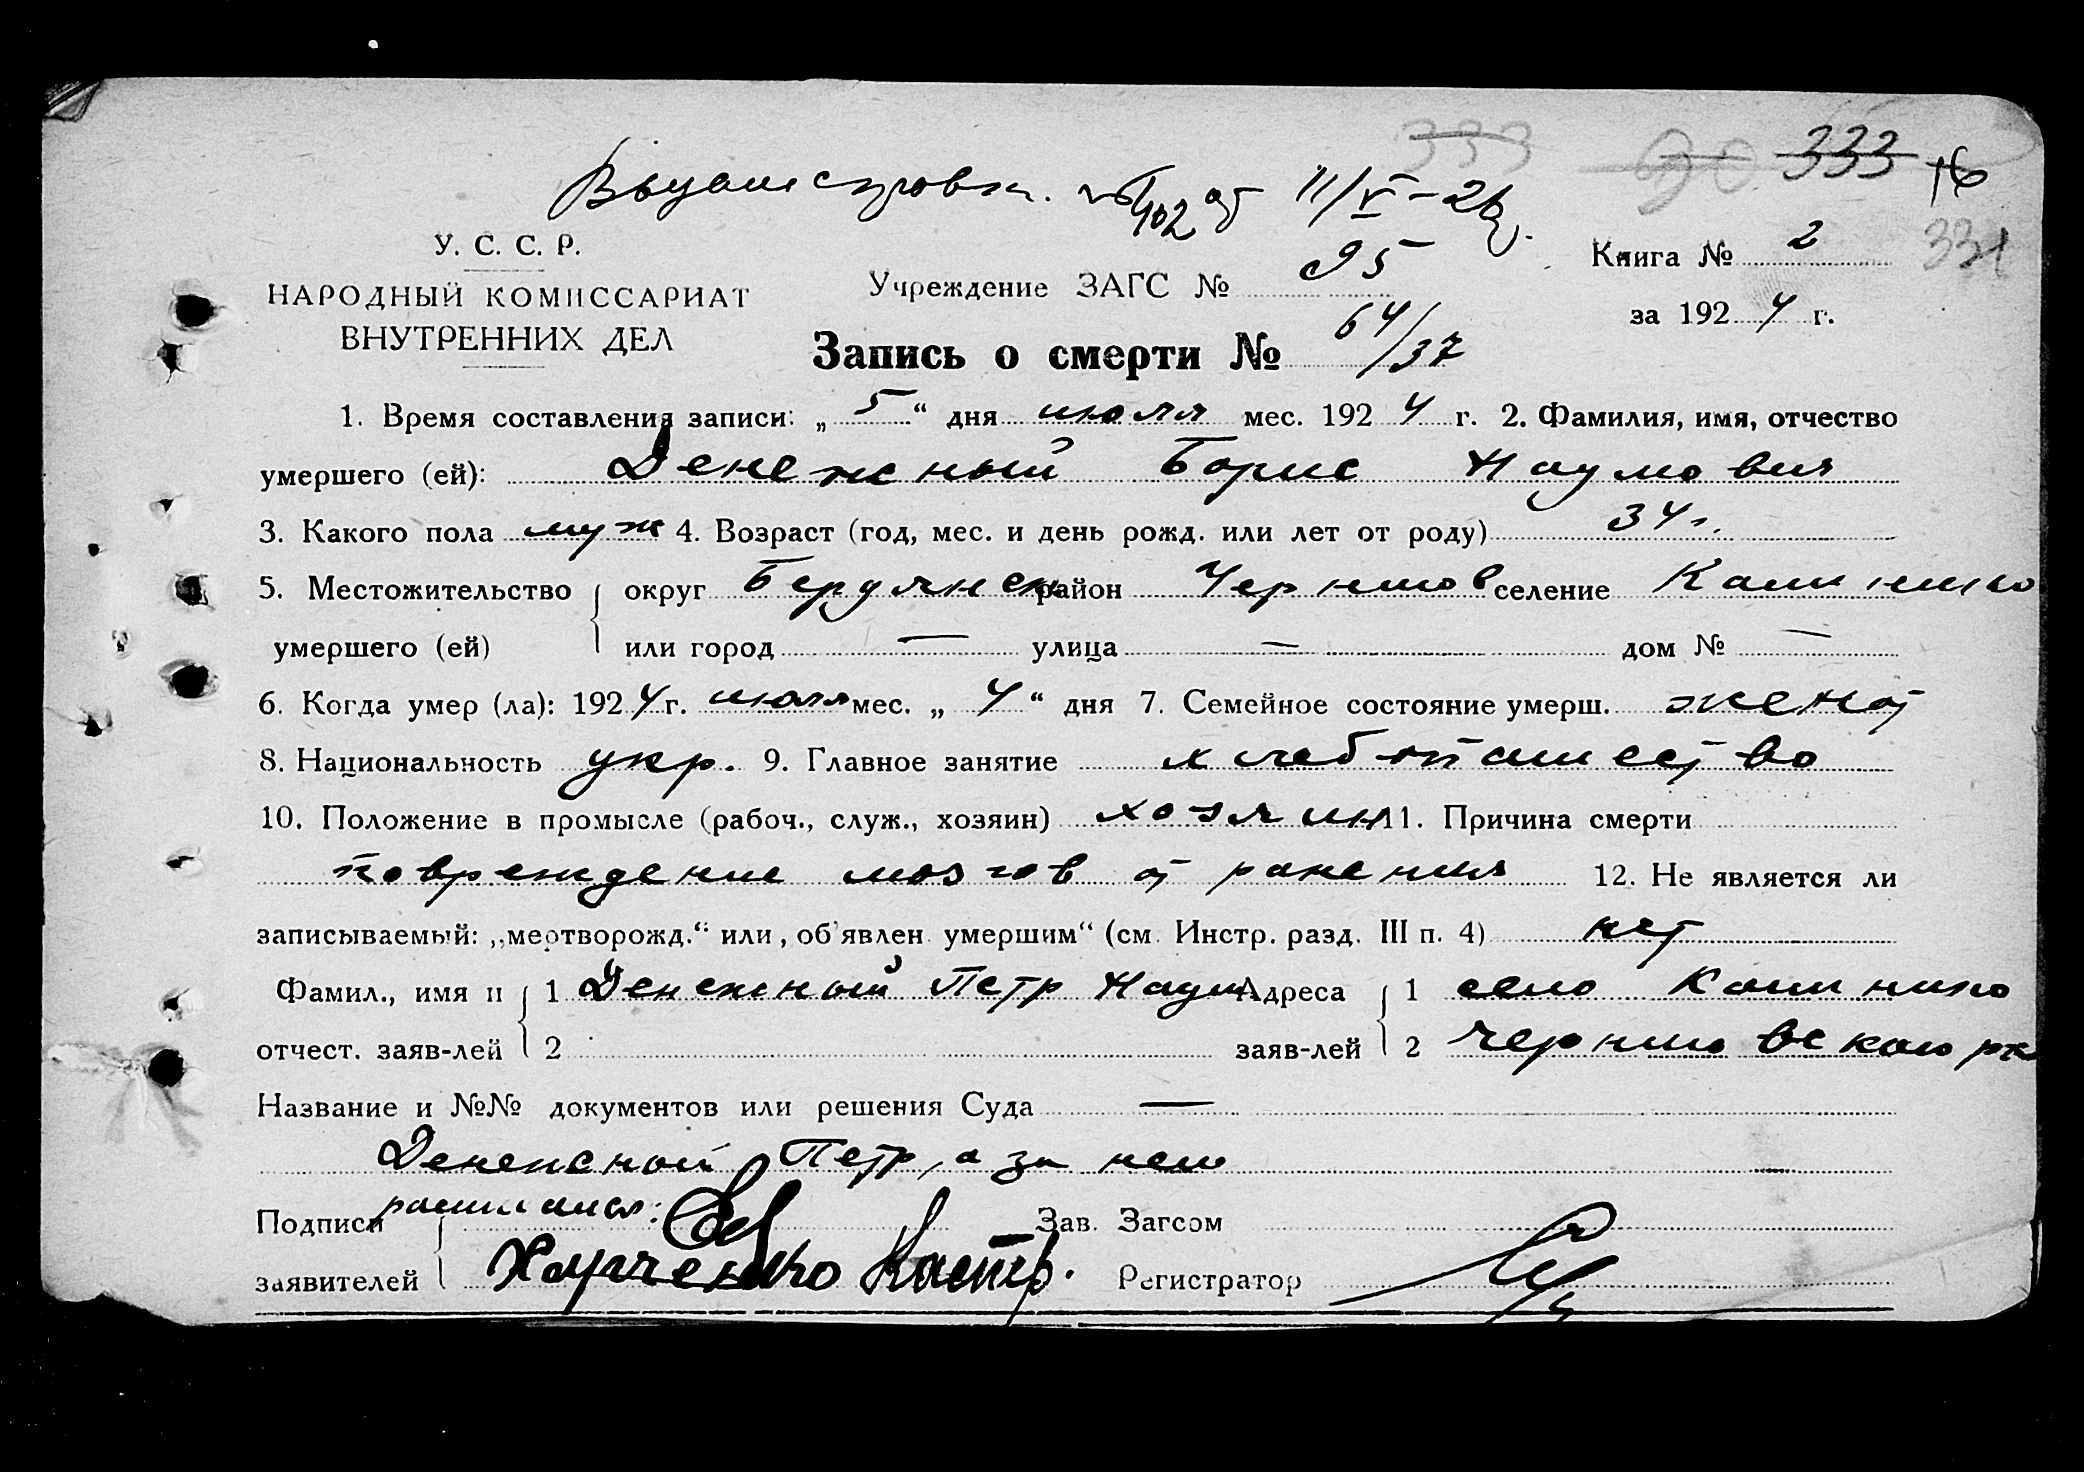 333 90 333 16
Выдана справка. №402 от 11/V-26г.
331
У. С. С. Р.
НАРОДНЫЙ КОМИССАРИАТ
ВНУТРЕННИХ ДЕЛ
Учреждение ЗАГС № 95
Книга № 2
за 1924 г.
Запись о смерти № 64/37
1. Время составления записи: „5“ дня июля мес. 1924 г. 2. Фамилия, имя, отчество
умершего (ей): Денежный Борис Наумович
3. Какого пола муж 4. Возраст (год, мес. и день рожд. или лет от роду) 34 г.
5. Местожительство округ Бердянск район Черниговс селение
умершего (ей) или город — улица — дом № —
6. Когда умер (ла): 1924 г. июля мес. „4“ дня 7. Семейное состояние умерш. женат
8. Национальность укр. 9. Главное занятие хлебопашество
10. Положение в промысле (рабоч., служ., хозяин) хозяин 11. Причина смерти
повреждение мозгов от ранения 12. Не является ли
записываемый: „мертворожд.“ или „об'явлен умершим“ (см. Инстр. разд. III п. 4) нет
Фамил., имя и 1 Денежный Петр Наум Адреса 1 село
отчест. заяв-лей 2 заяв-лей 2
Название и №№ документов или решения Суда —
Денежный Петр, а за него
Подписи расписался: Зав. Загсом
заявителей Харченко Регистратор